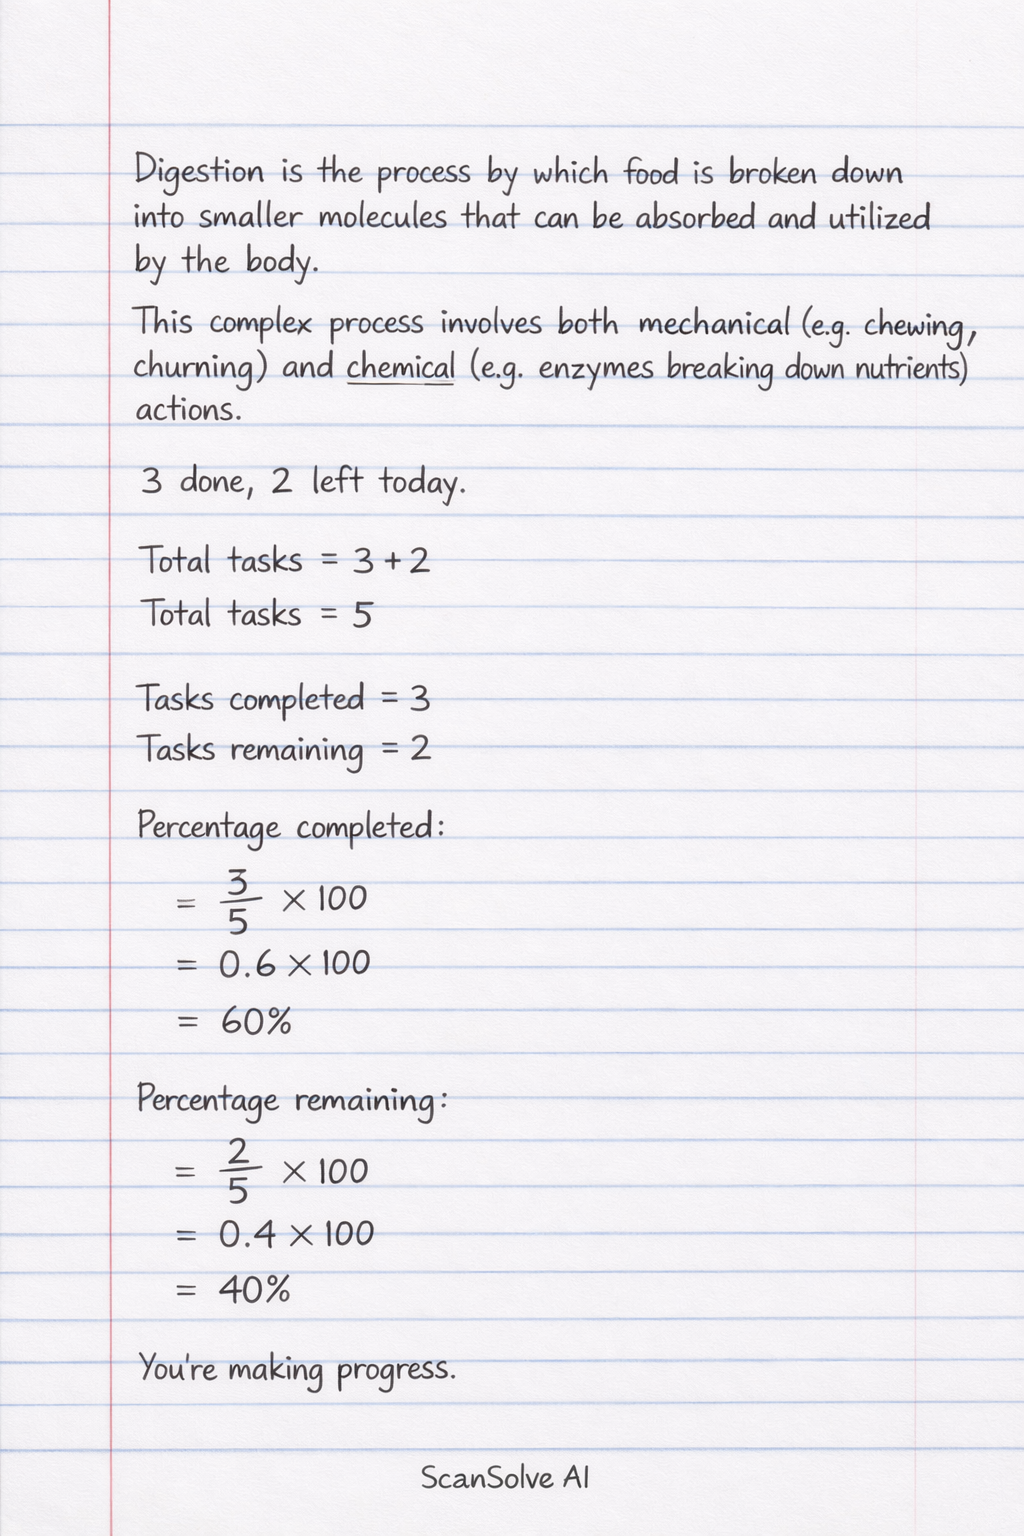 Digestion is the process by which food is broken down
into smaller molecules that can be absorbed and utilized
by the body.
This complex process involves both mechanical (e.g. chewing,
churning) and chemical (e.g. enzymes breaking down nutrients)
actions.
3 done, 2 left today.
Total tasks = 3 + 2
Total tasks = 5
Tasks completed = 3
Tasks remaining = 2
Percentage completed:
= 3/5 × 100
= 0.6 × 100
= 60%
Percentage remaining:
= 2/5 × 100
= 0.4 × 100
= 40%
You're making progress.
ScanSolve AI